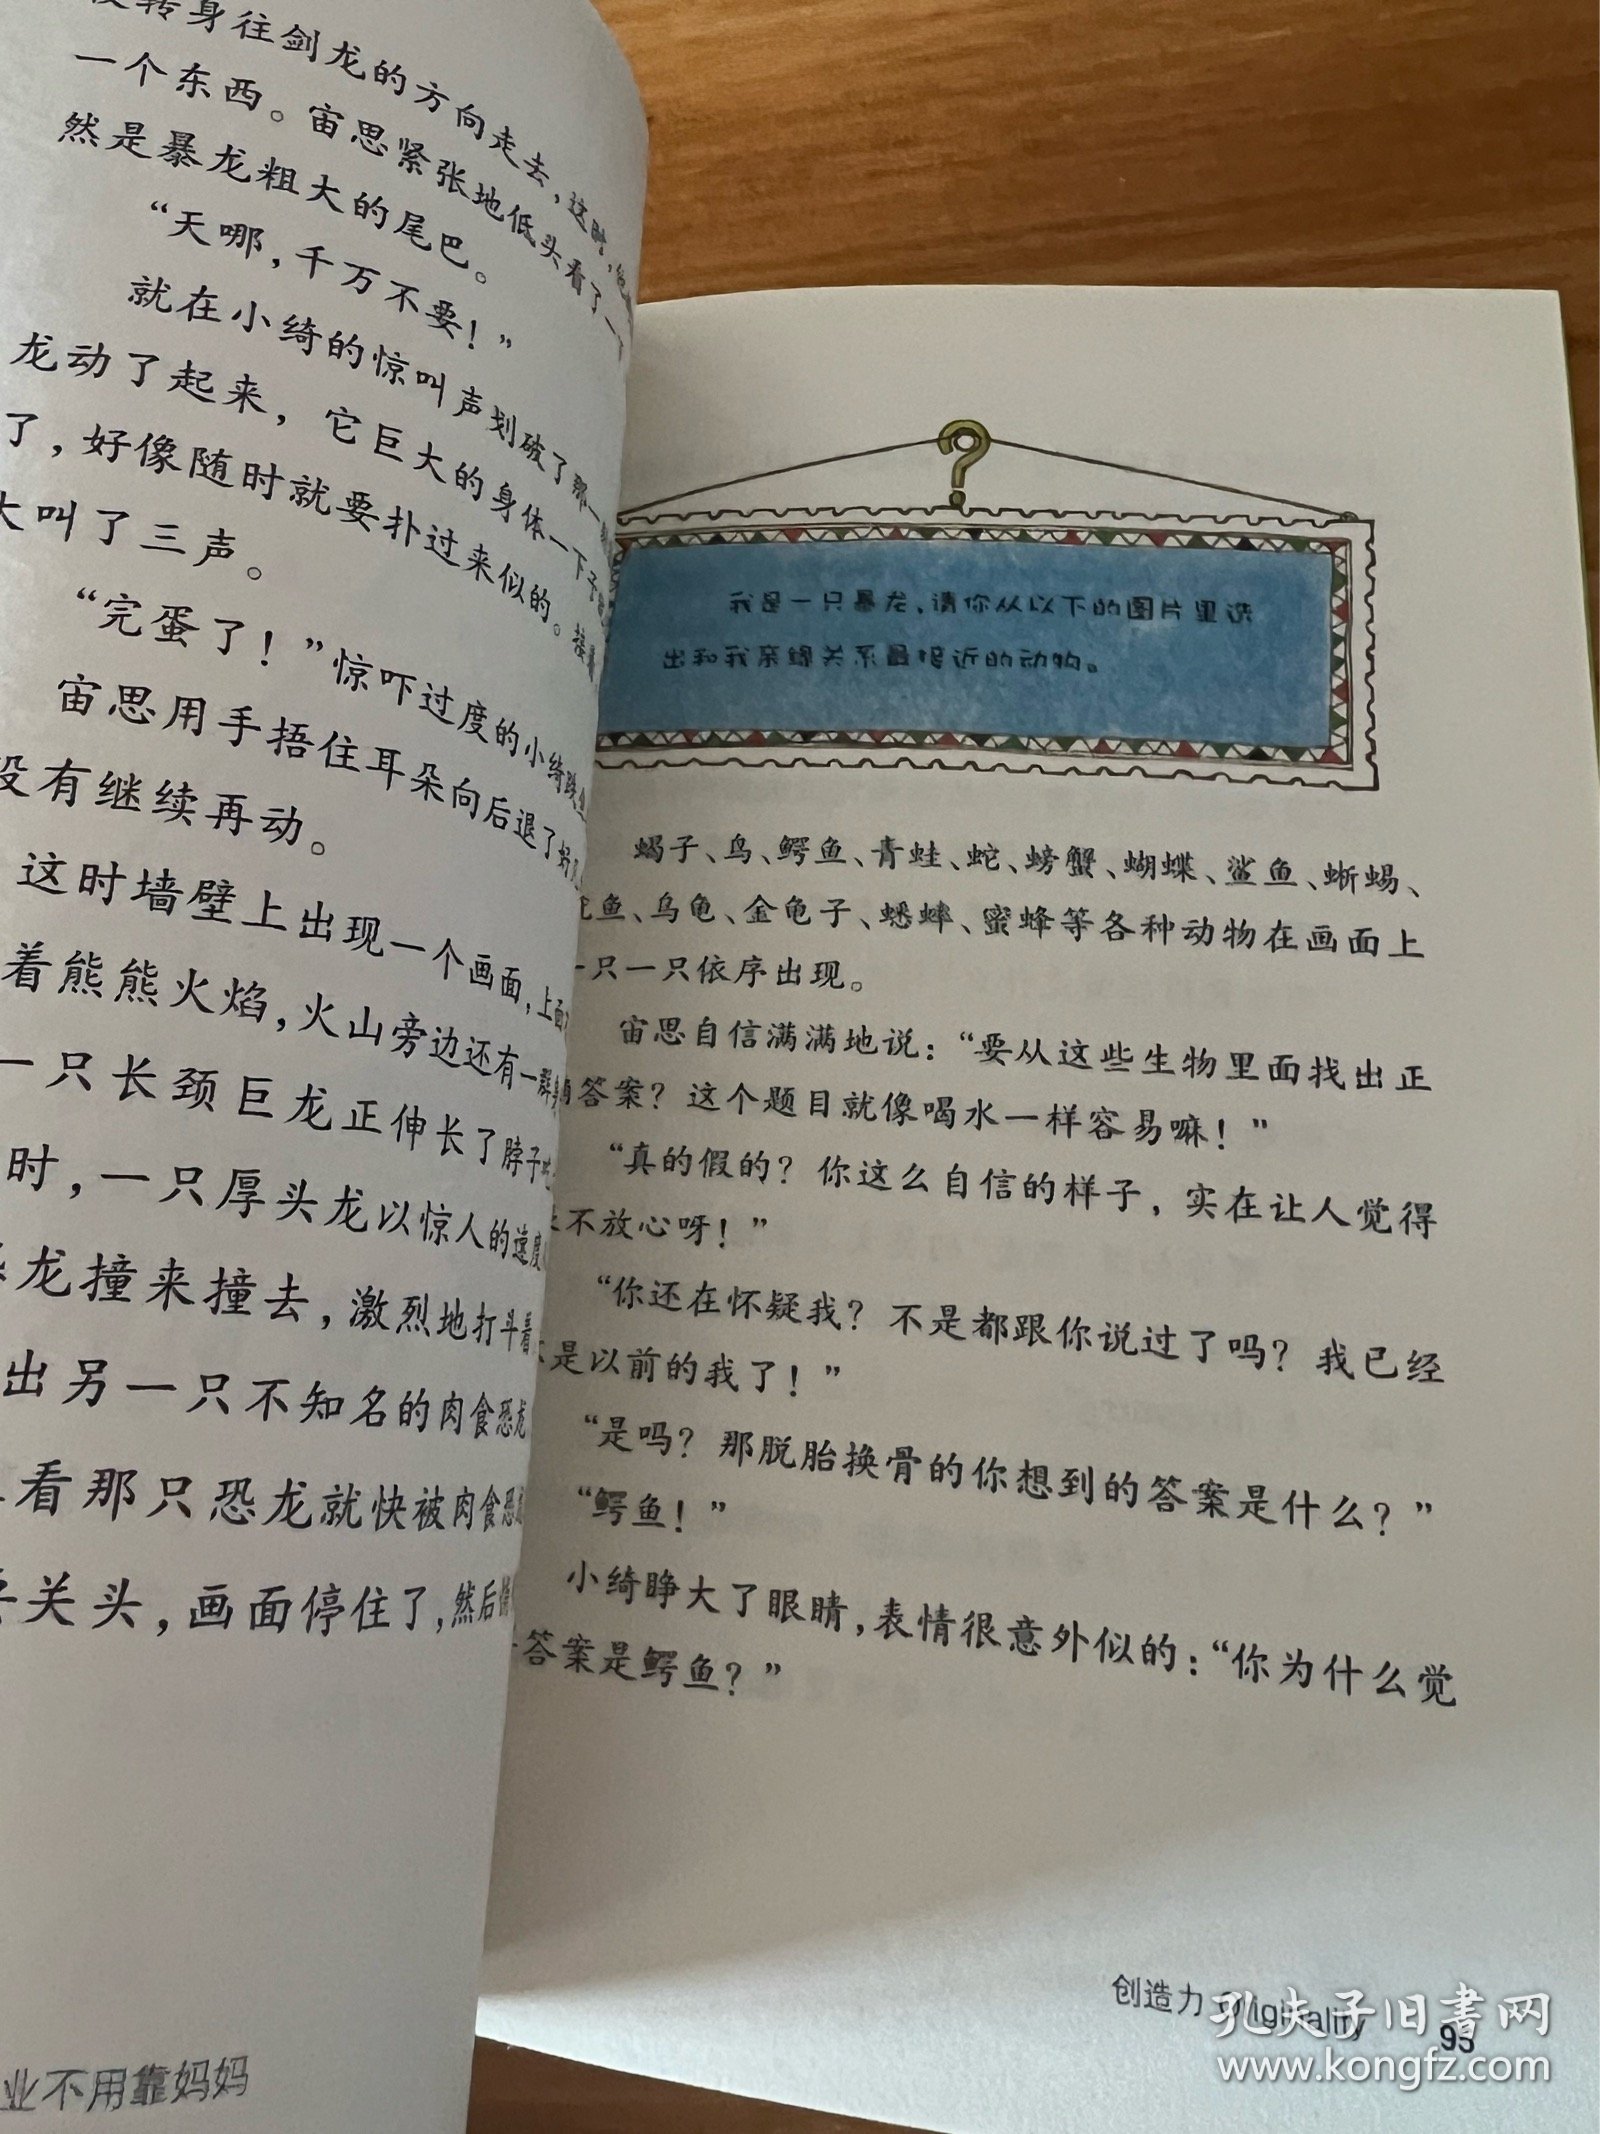 转身往剑龙的方向走去，这时，
一个东西。宙思紧张地低头看了一下
然是暴龙粗大的尾巴。
“天哪，千万不要！”
就在小绮的惊叫声划破了那一
龙动了起来，它巨大的身体一下子
了，好像随时就要扑过来似的。接着
大叫了三声。
“完蛋了！”惊吓过度的小绮跌坐
宙思用手捂住耳朵向后退了好几
没有继续再动。
这时墙壁上出现一个画面，上面
着熊熊火焰，火山旁边还有一群
一只长颈巨龙正伸长了脖子
时，一只厚头龙以惊人的速度
龙撞来撞去，激烈地打斗着
出另一只不知名的肉食恐龙
看那只恐龙就快被肉食恐龙
关头，画面停住了，然后慢
业不用靠妈妈
我是一只暴龙，请你从以下的图片里选
出和我亲缘关系最接近的动物。
蝎子、鸟、鳄鱼、青蛙、蛇、螃蟹、蝴蝶、鲨鱼、蜥蜴、
鱼、乌龟、金龟子、蟋蟀、蜜蜂等各种动物在画面上
一只一只依序出现。
宙思自信满满地说：“要从这些生物里面找出正
答案？这个题目就像喝水一样容易嘛！”
“真的假的？你这么自信的样子，实在让人觉得
不放心呀！”
“你还在怀疑我？不是都跟你说过了吗？我已经
是以前的我了！”
“是吗？那脱胎换骨的你想到的答案是什么？”
“鳄鱼！”
小绮睁大了眼睛，表情很意外似的：“你为什么觉
答案是鳄鱼？”
创造力 Originality
95
孔夫子旧書网
www.kongfz.com